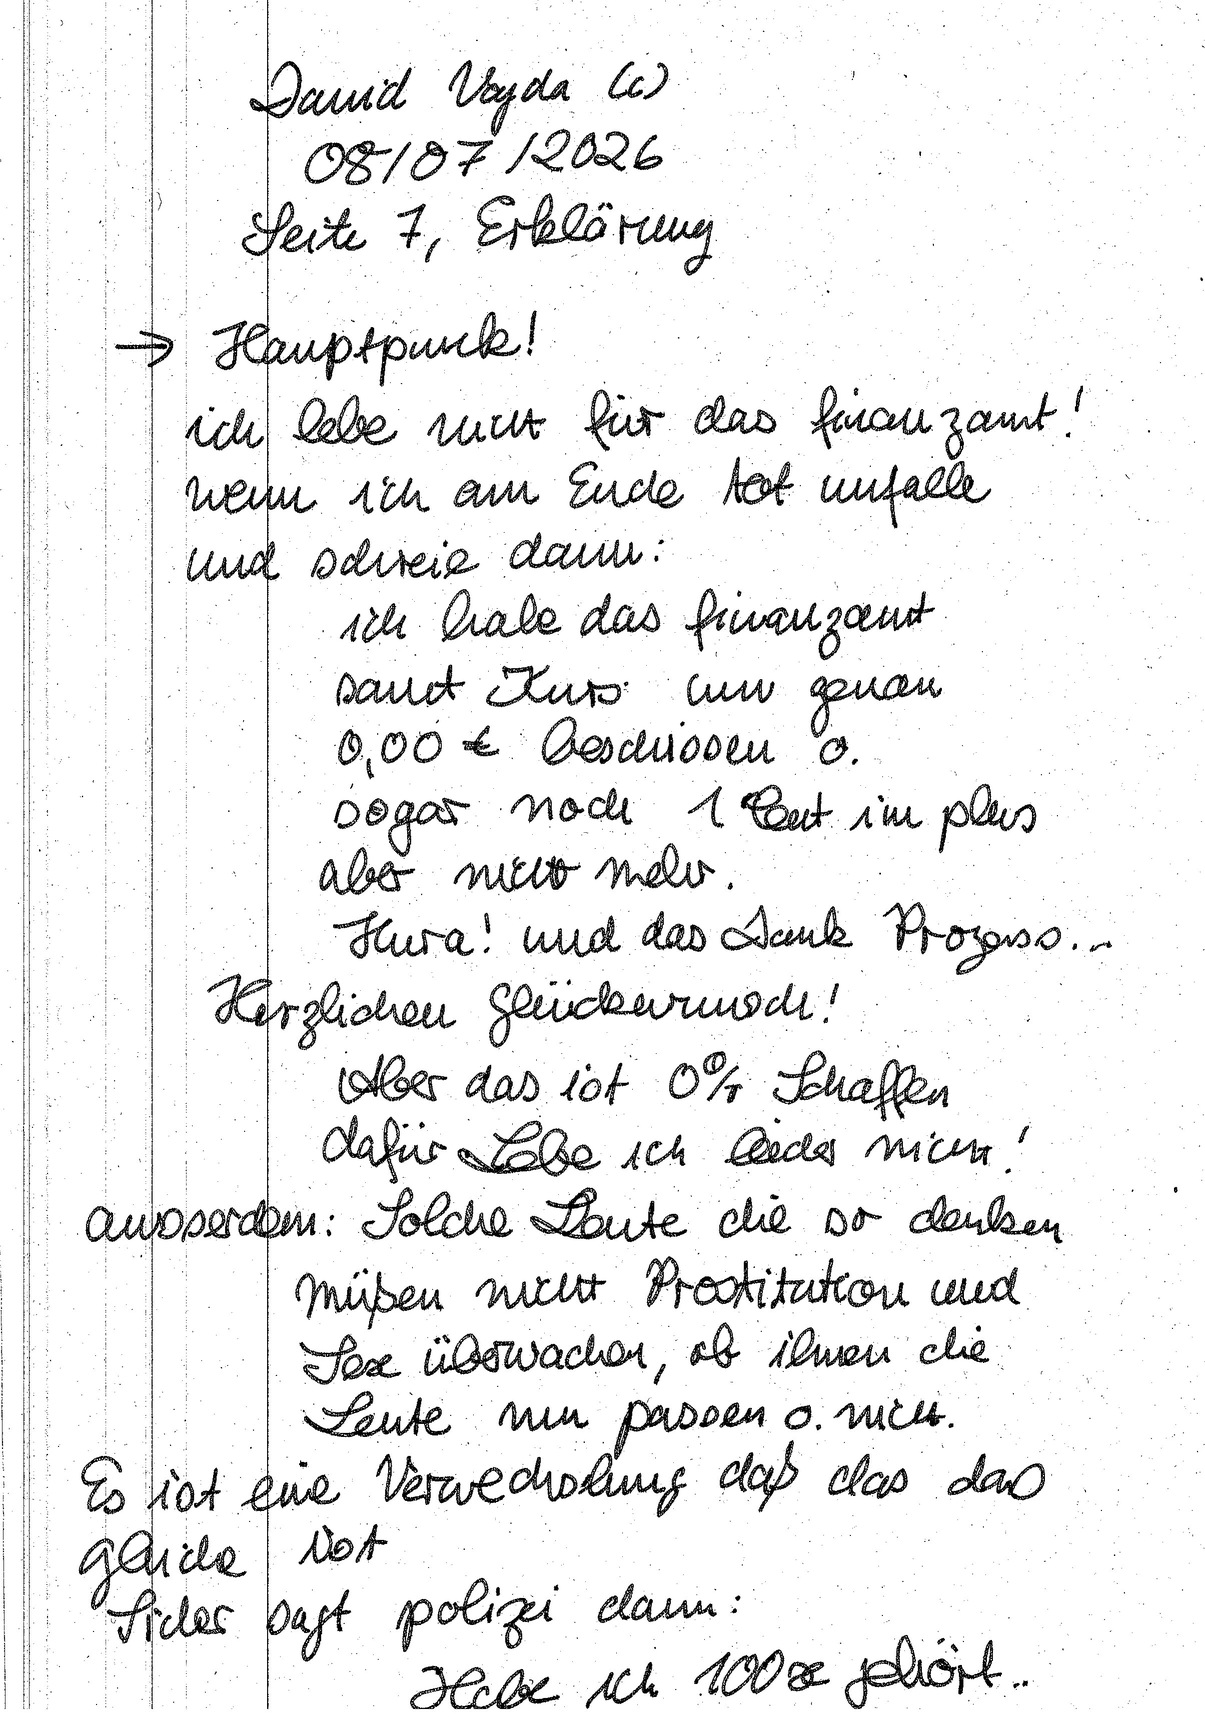 David Vayda (c)
08/07/2026
Seite 7, Erklärung
→ Hauptpunk!
ich lebe nicht für das finanzamt!
wenn ich am Ende tot umfalle
und schreie dann:
ich habe das finanzamt
samt Kurs um genau
0,00 € beschissen o.
sogar noch 1 Cent im plus
aber nicht mehr.
Hura! und das Dank Prozess...
Herzlichen Glückwunsch!
Aber das ist 0% Schaffen
dafür Lebe ich leider nicht!
ausserdem: Solche Leute die so denken
müßen nicht Prostitution und
Sex überwachen, ob ihnen die
Leute nun passen o. nicht.
Es ist eine Verwechslung daß das das
gleiche ist
Sicher sagt polizei dann:
Habe ich 100x gehört..